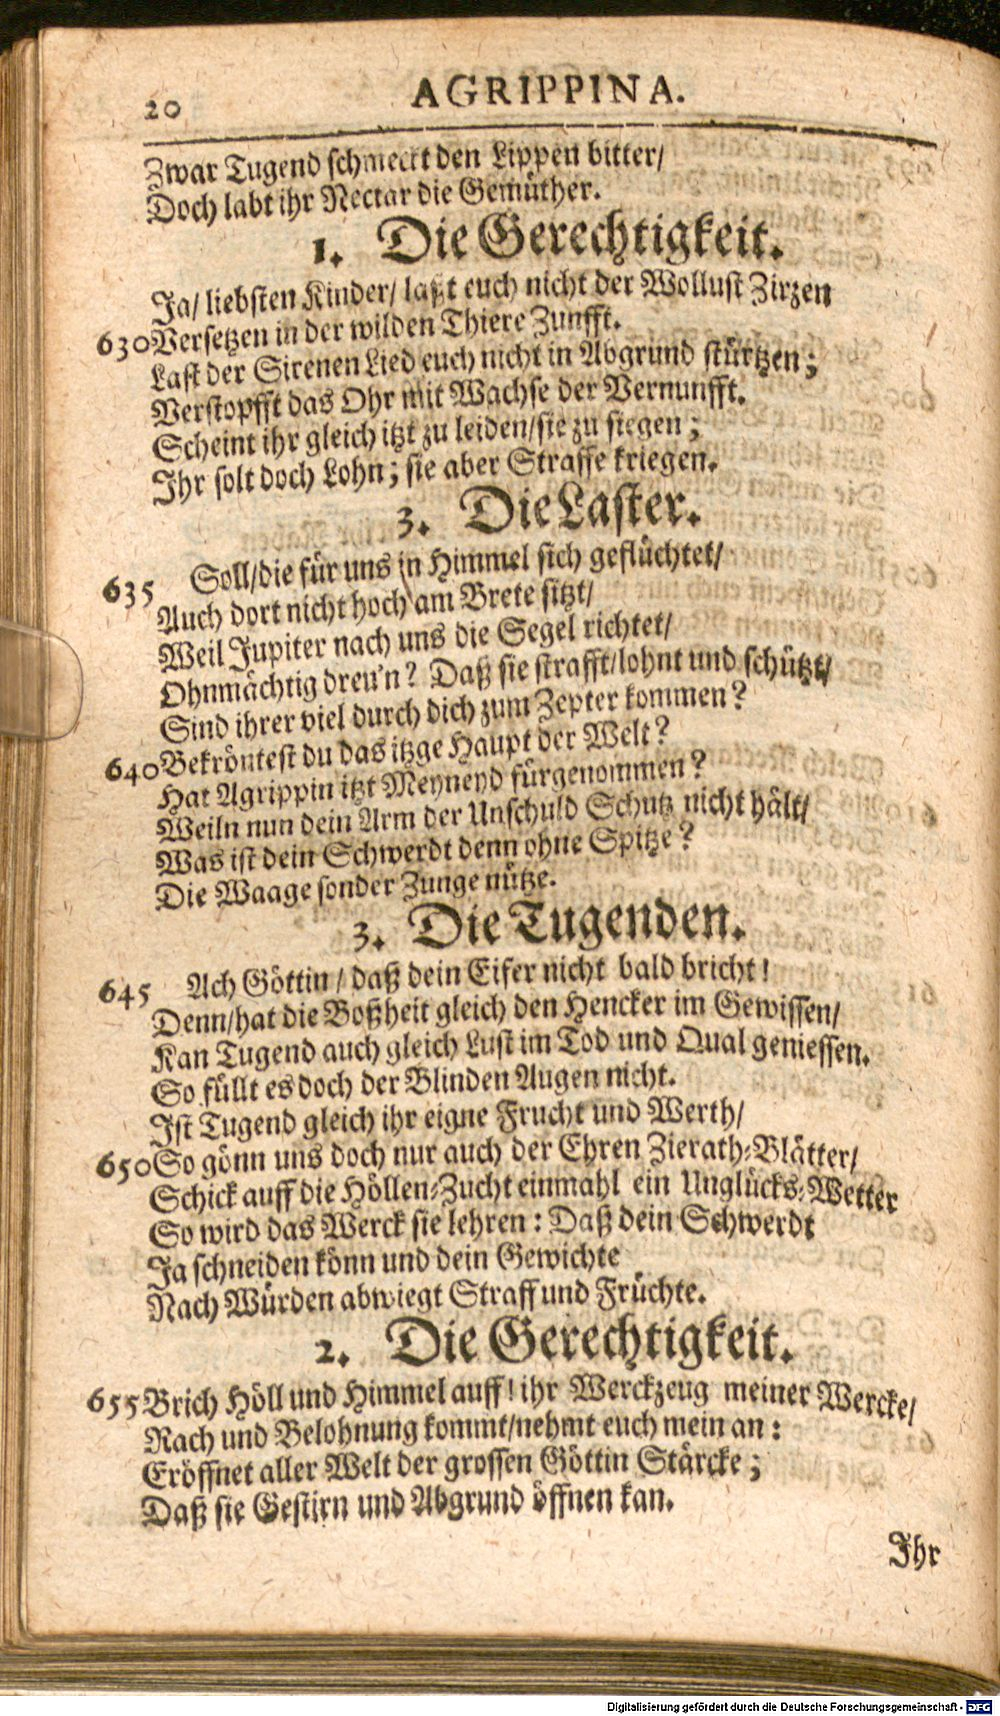 20
AGRIPPINA.
Zwar Tugend schmeckt den Lippen bitter/
Doch labt ihr Nectar die Gemüther.
1. Die Gerechtigkeit.
Ja/ liebsten Kinder/ laßt euch nicht der Wollust Zirzen
630 Versetzen in der wilden Thiere Zunfft.
Last der Sirenen Lied euch nicht in Abgrund stürtzen;
Verstopfft das Ohr mit Wachse der Vernunfft.
Scheint ihr gleich itzt zu leiden/sie zu siegen;
Ihr solt doch Lohn; sie aber Straffe kriegen.
3. Die Laster.
635 Soll/die für uns in Himmel sich geflüchtet/
Auch dort nicht hoch am Brete sitzt/
Weil Jupiter nach uns die Segel richtet/
Ohnmächtig dreu'n? Daß sie strafft/lohnt und schützt/
Sind ihrer viel durch dich zum Zepter kommen?
640 Bekröntest du das itzge Haupt der Welt?
Hat Agrippin itzt Meyneyd fürgenommen?
Weiln nun dein Arm der Unschuld Schutz nicht hält/
Was ist dein Schwerdt denn ohne Spitze?
Die Waage sonder Zunge nütze.
3. Die Tugenden.
645 Ach Göttin/ daß dein Eifer nicht bald bricht!
Denn/hat die Boßheit gleich den Hencker im Gewissen/
Kan Tugend auch gleich Lust im Tod und Qual geniessen.
So füllt es doch der Blinden Augen nicht.
Ist Tugend gleich ihr eigne Frucht und Werth/
650 So gönn uns doch nur auch der Ehren Zierath-Blätter/
Schick auff die Höllen-Zucht einmahl ein Unglücks-Wetter
So wird das Werck sie lehren: Daß dein Schwerdt
Ja schneiden könn und dein Gewichte
Nach Würden abwiegt Straff und Früchte.
2. Die Gerechtigkeit.
655 Brich Höll und Himmel auff! ihr Werckzeug meiner Wercke/
Rach und Belohnung kommt/nehmt euch mein an:
Eröffnet aller Welt der grossen Göttin Stärcke;
Daß sie Gestirn und Abgrund öffnen kan.
Ihr
Digitalisierung gefördert durch die Deutsche Forschungsgemeinschaft - DFG